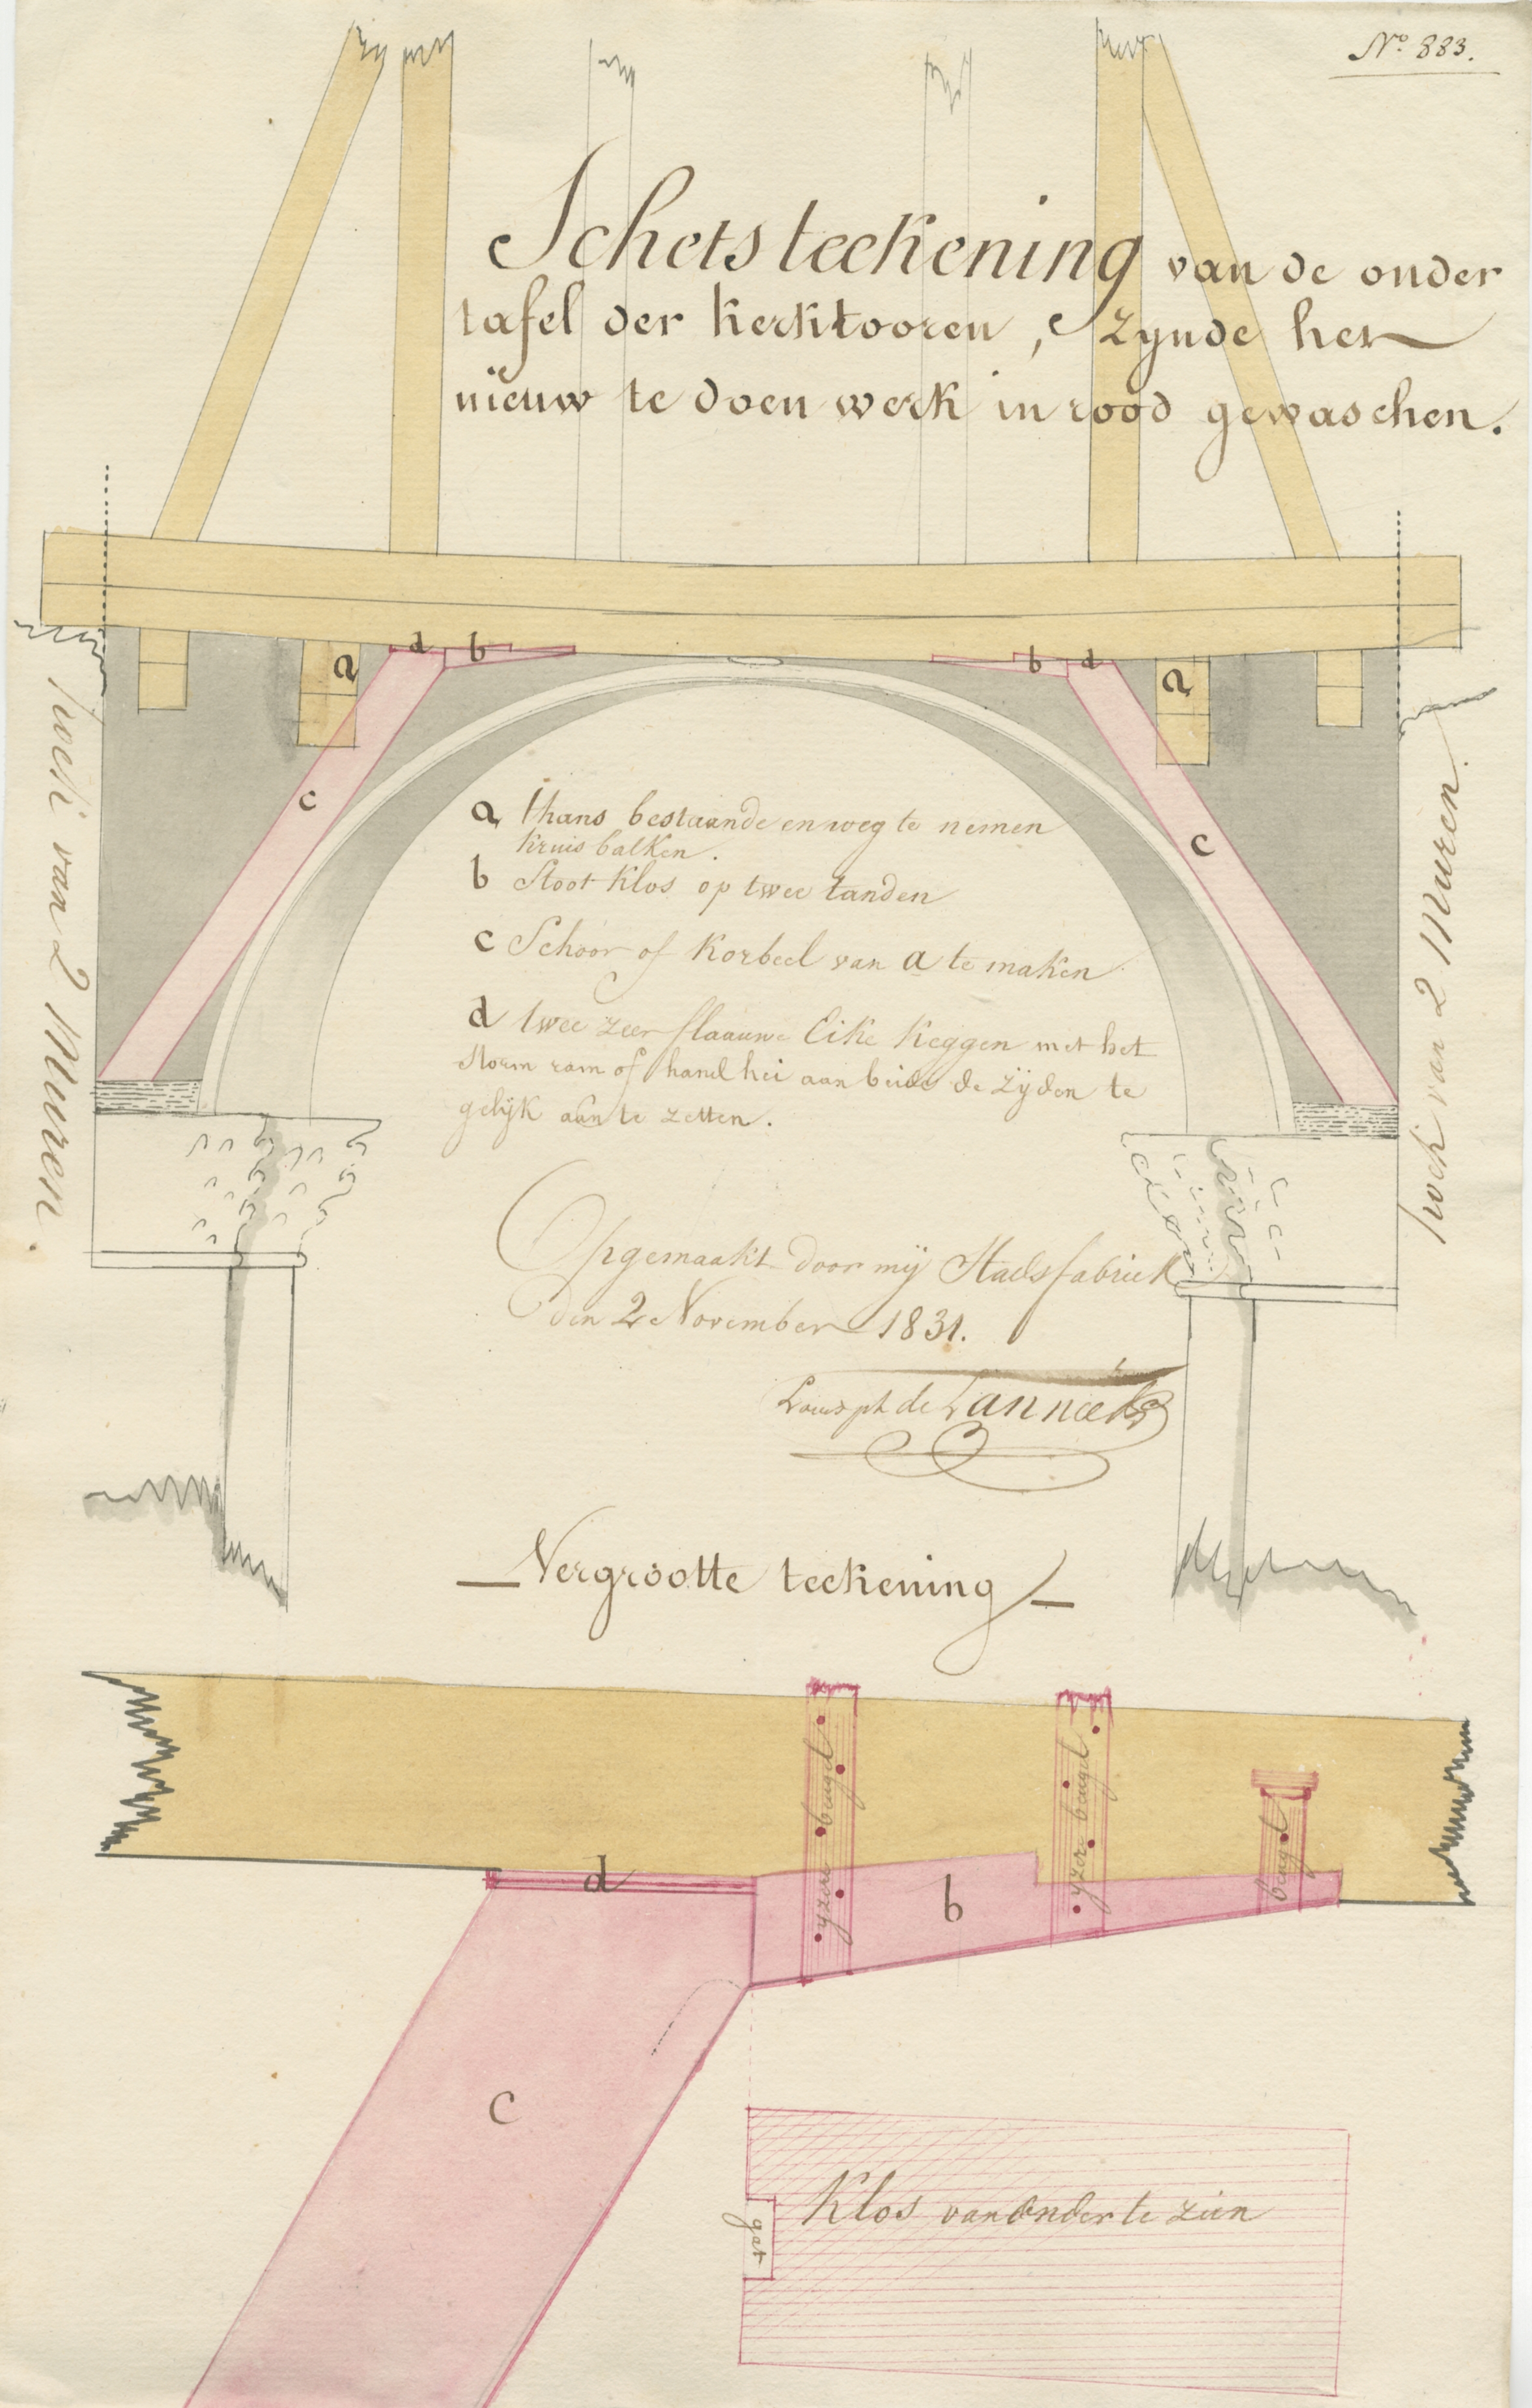 No. 883.
Schetsteekening van de onder
tafel der kerktooren, zynde het
nieuw te doen werk in rood gewaschen.
d b b d
a a
c c
hoek van 2 Muren.
hoek van 2 Muren.
a thans bestaande en weg te nemen
kruis balken.
b Stoot klos op twee tanden
c Schoor of Korbeel van a te maken
d twee zeer flaauwe Eike keggen met het
storm ram of hand hei aan beide de zijden te
gelijk aan te zetten.
Opgemaakt door mij Stadsfabriek
den 2 November 1831.
de Lannoee
Vergrootte teekening
yzere beugel
yzere beugel
beugel
d
b
c
Klos van onder te zien
gat